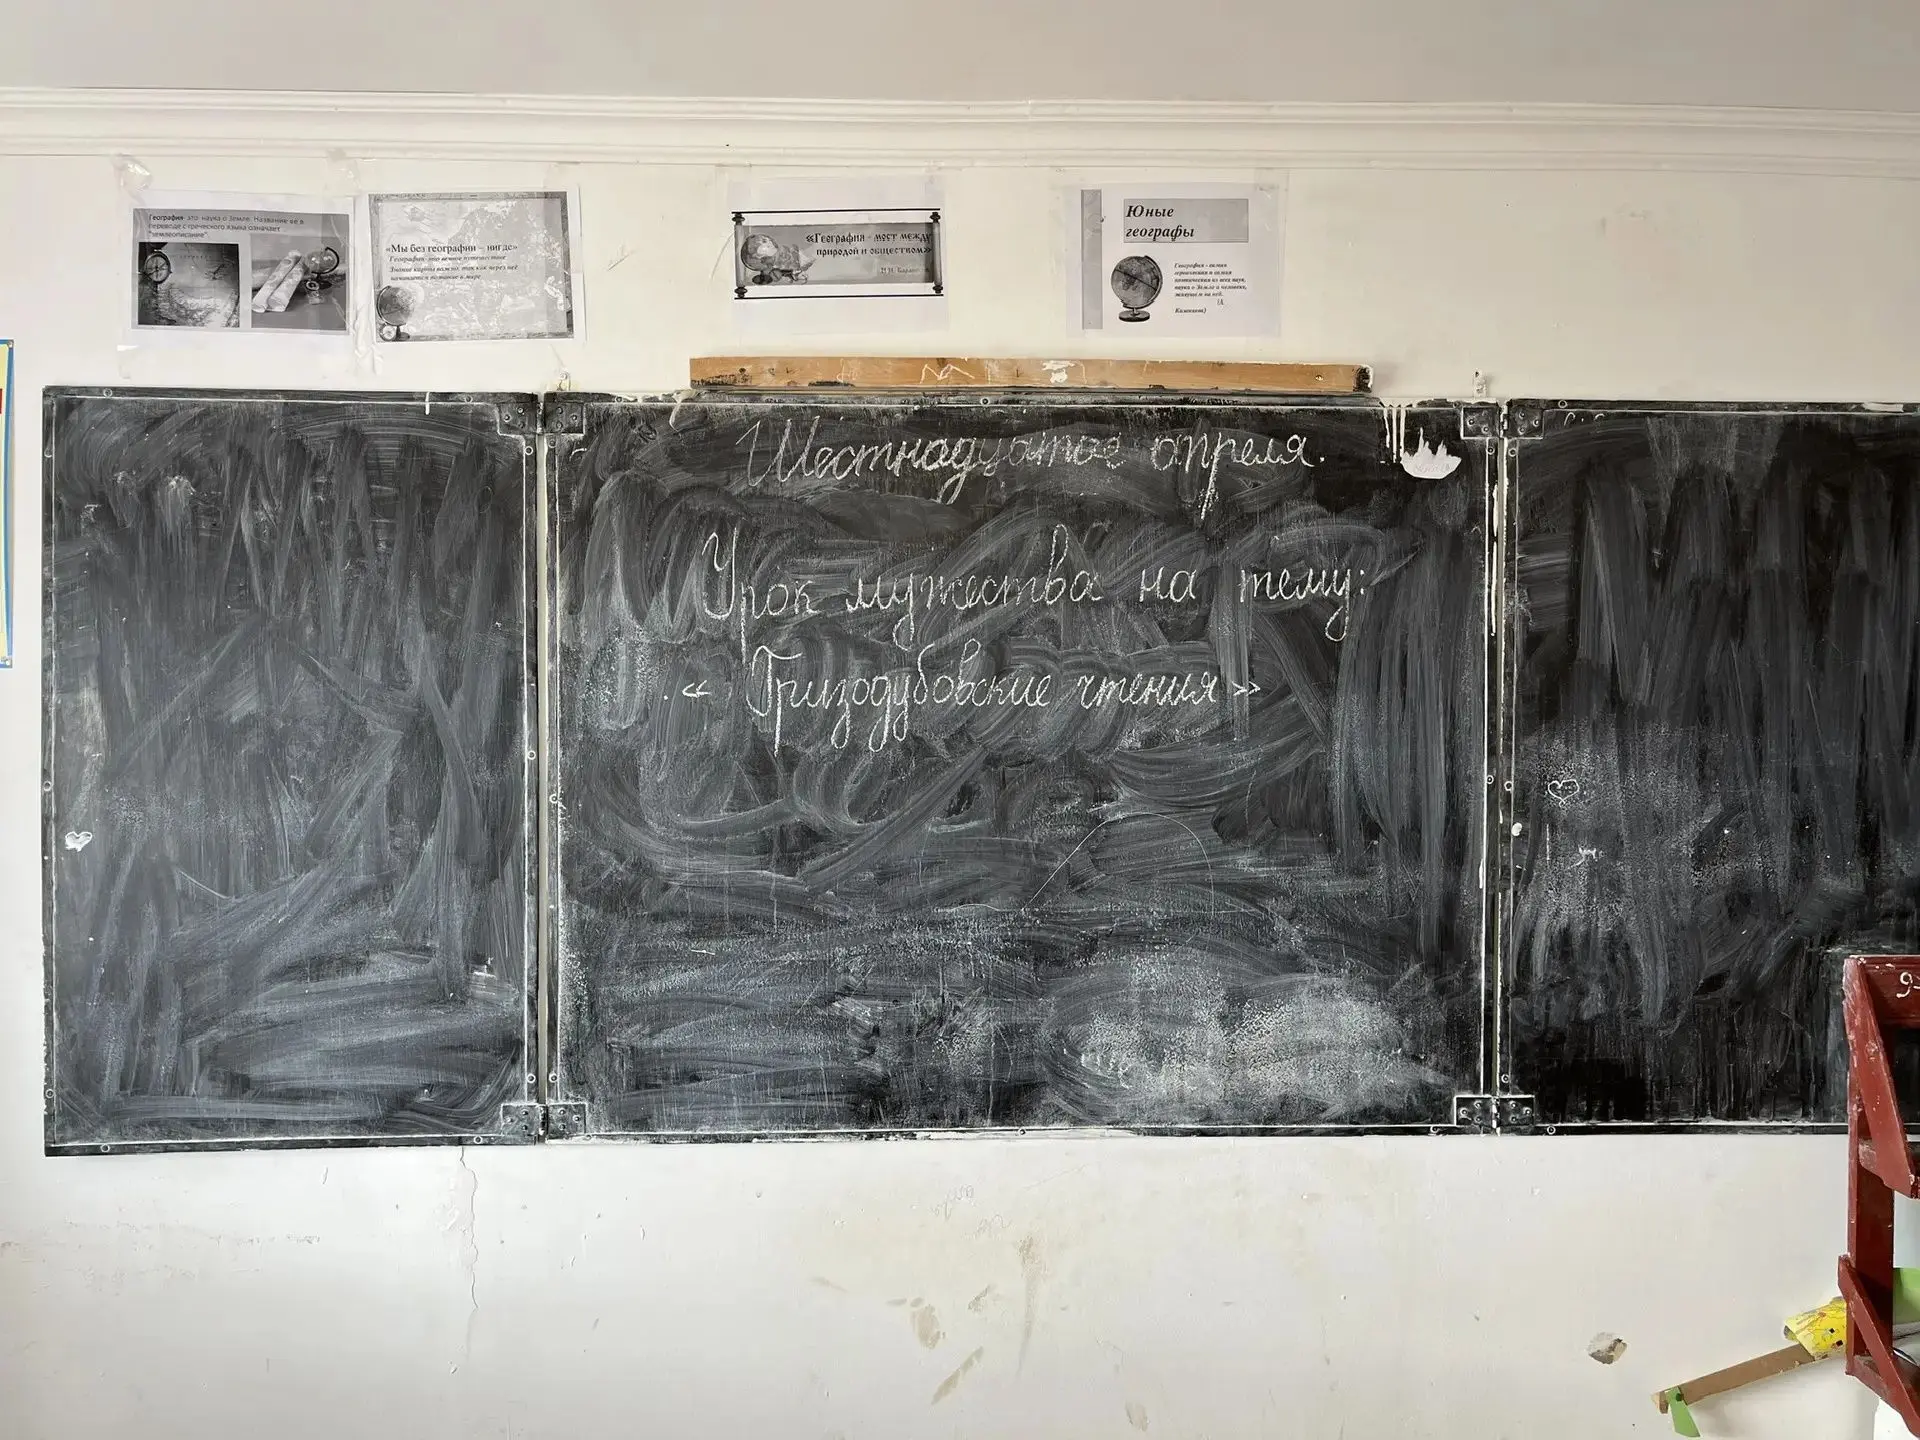 География- это наука о Земле. Название её в
переводе с греческого языка означает
"землеописание".
«Мы без географии – нигде»
География-это вечное путешествие
Знание карты важно, так как через неё
начинается познание в мире
«География - мост между
природой и обществом»
Н.Н. Баранский
Юные
географы
География - самая
героическая и самая
поэтическая из всех наук,
наука о Земле и человеке,
живущем на ней.
(А.
Казанцева)
Шестнадцатое апреля.
Урок мужества на тему:
« Гризодубовские чтения »
9-